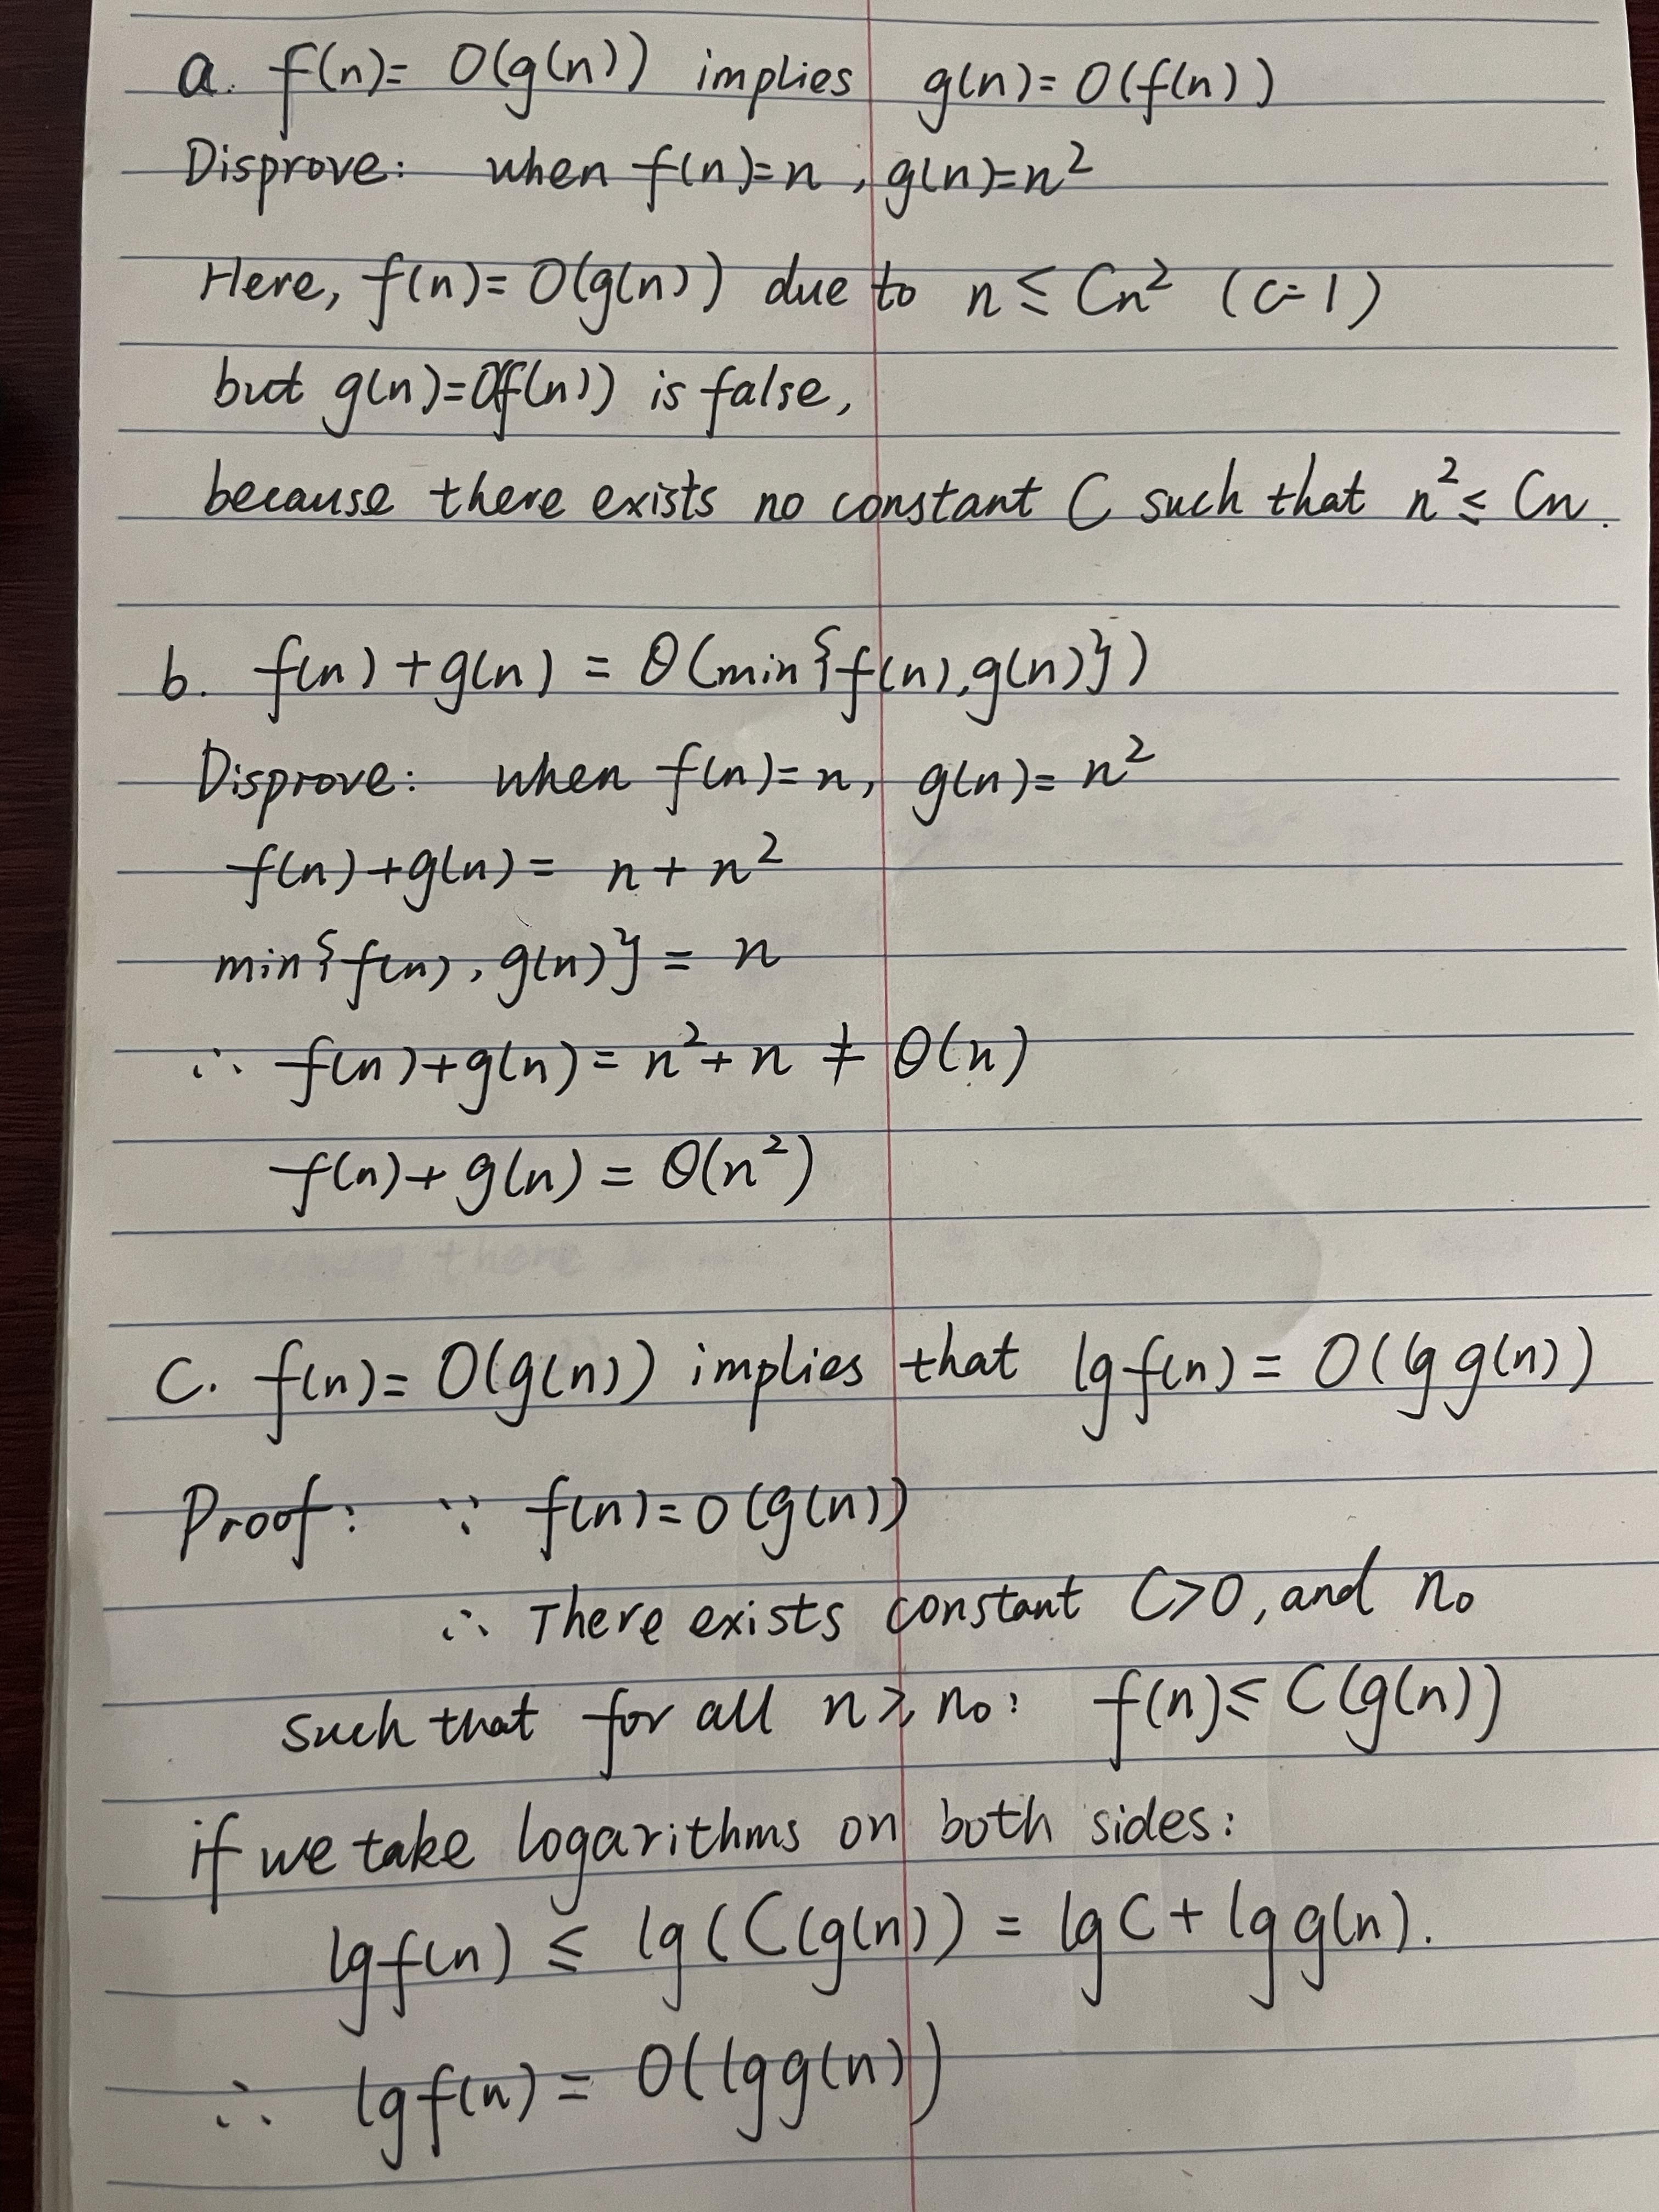 a. f(n)= O(g(n)) implies g(n)= O(f(n))
Disprove: when f(n)=n , g(n)=n²
Here, f(n)= O(g(n)) due to n ≤ Cn² (C=1)
but g(n)=O(f(n)) is false,
because there exists no constant C such that n² ≤ Cn.
b. f(n)+g(n) = Θ(min{f(n),g(n)})
Disprove: when f(n)=n, g(n)= n²
f(n)+g(n)= n+n²
min{f(n), g(n)} = n
∴ f(n)+g(n)= n²+n ≠ Θ(n)
f(n)+g(n) = Θ(n²)
C. f(n)= O(g(n)) implies that lg f(n) = O(lg g(n))
Proof: ∵ f(n)=O(g(n))
∴ There exists constant C>0, and n₀
such that for all n≥n₀: f(n)≤ C(g(n))
if we take logarithms on both sides:
lgf(n) ≤ lg(C(g(n)) = lgC + lg g(n).
∴ lgf(n) = O(lgg(n))